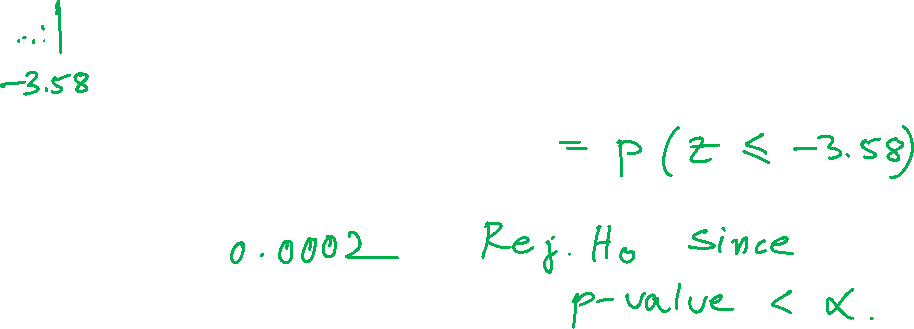 -3.58
= P(Z ≤ -3.58)
0.0002 Rej. H₀ since
p-value < α.